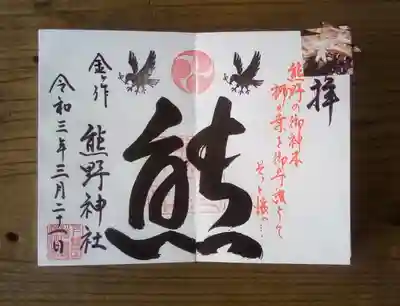 拝
熊野の御神木
梛の葉を御守護として
そっと懐へ…
熊
金ヶ作
熊野神社
令和三年三月二十一日